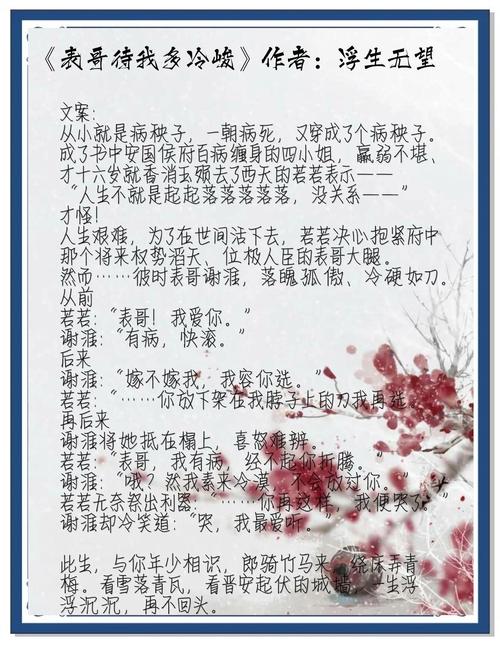 《表哥待我多冷峻》作者：浮生无望
文案：
从小就是病秧子，一朝病死，又穿成了个病秧子。
成了书中安国侯府百病缠身的四小姐，羸弱不堪、
才十六岁就香消玉殒去了西天的若若表示——
“人生不就是起起落落落落，没关系——”
才怪！
人生艰难，为了在世间活下去，若若决心抱紧府中
那个将来权势滔天、位极人臣的表哥大腿。
然而……彼时表哥谢淮，落魄孤傲、冷硬如刀。
从前
若若：“表哥！我爱你。”
谢淮：“有病，快滚。”
后来
谢淮：“嫁不嫁我，我容你选。”
若若：“……你放下架在我脖子上的刀我再选。”
再后来
谢淮将她抵在榻上，喜怒难辨。
若若：“表哥，我有病，经不起你折腾。”
谢淮：“哦？然我素来冷漠，不会放过你。”
若若无奈祭出利器：“……你再这样，我便哭了。”
谢淮却冷笑道：“哭，我最爱听。”
此生，与你年少相识，郎骑竹马来，绕床弄青
梅。看雪落青瓦，看晋安起伏的城墙，一生浮
浮沉沉，再不回头。